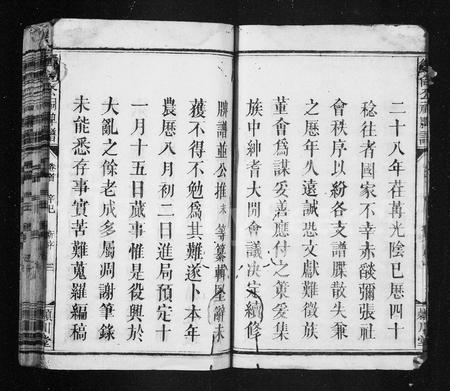 二十八年荏苒光陰已歷四十
稔往者國家不幸赤燄彌張社
會秩序以紛各支譜牒散失兼
之歷年久遠誠恐文獻難徵族
董會爲謀妥善應付之策爰集
族中紳耆大開會議決定續修
牒譜並公推未等纂輯屢辭未
獲不得不勉爲其難遂卜本年
農歷八月初二日進局預定十
一月十五日蕆事惟是役興於
大亂之餘老成多屬凋謝筆錄
未能悉存事實苦難蒐羅編稿
潁川堂